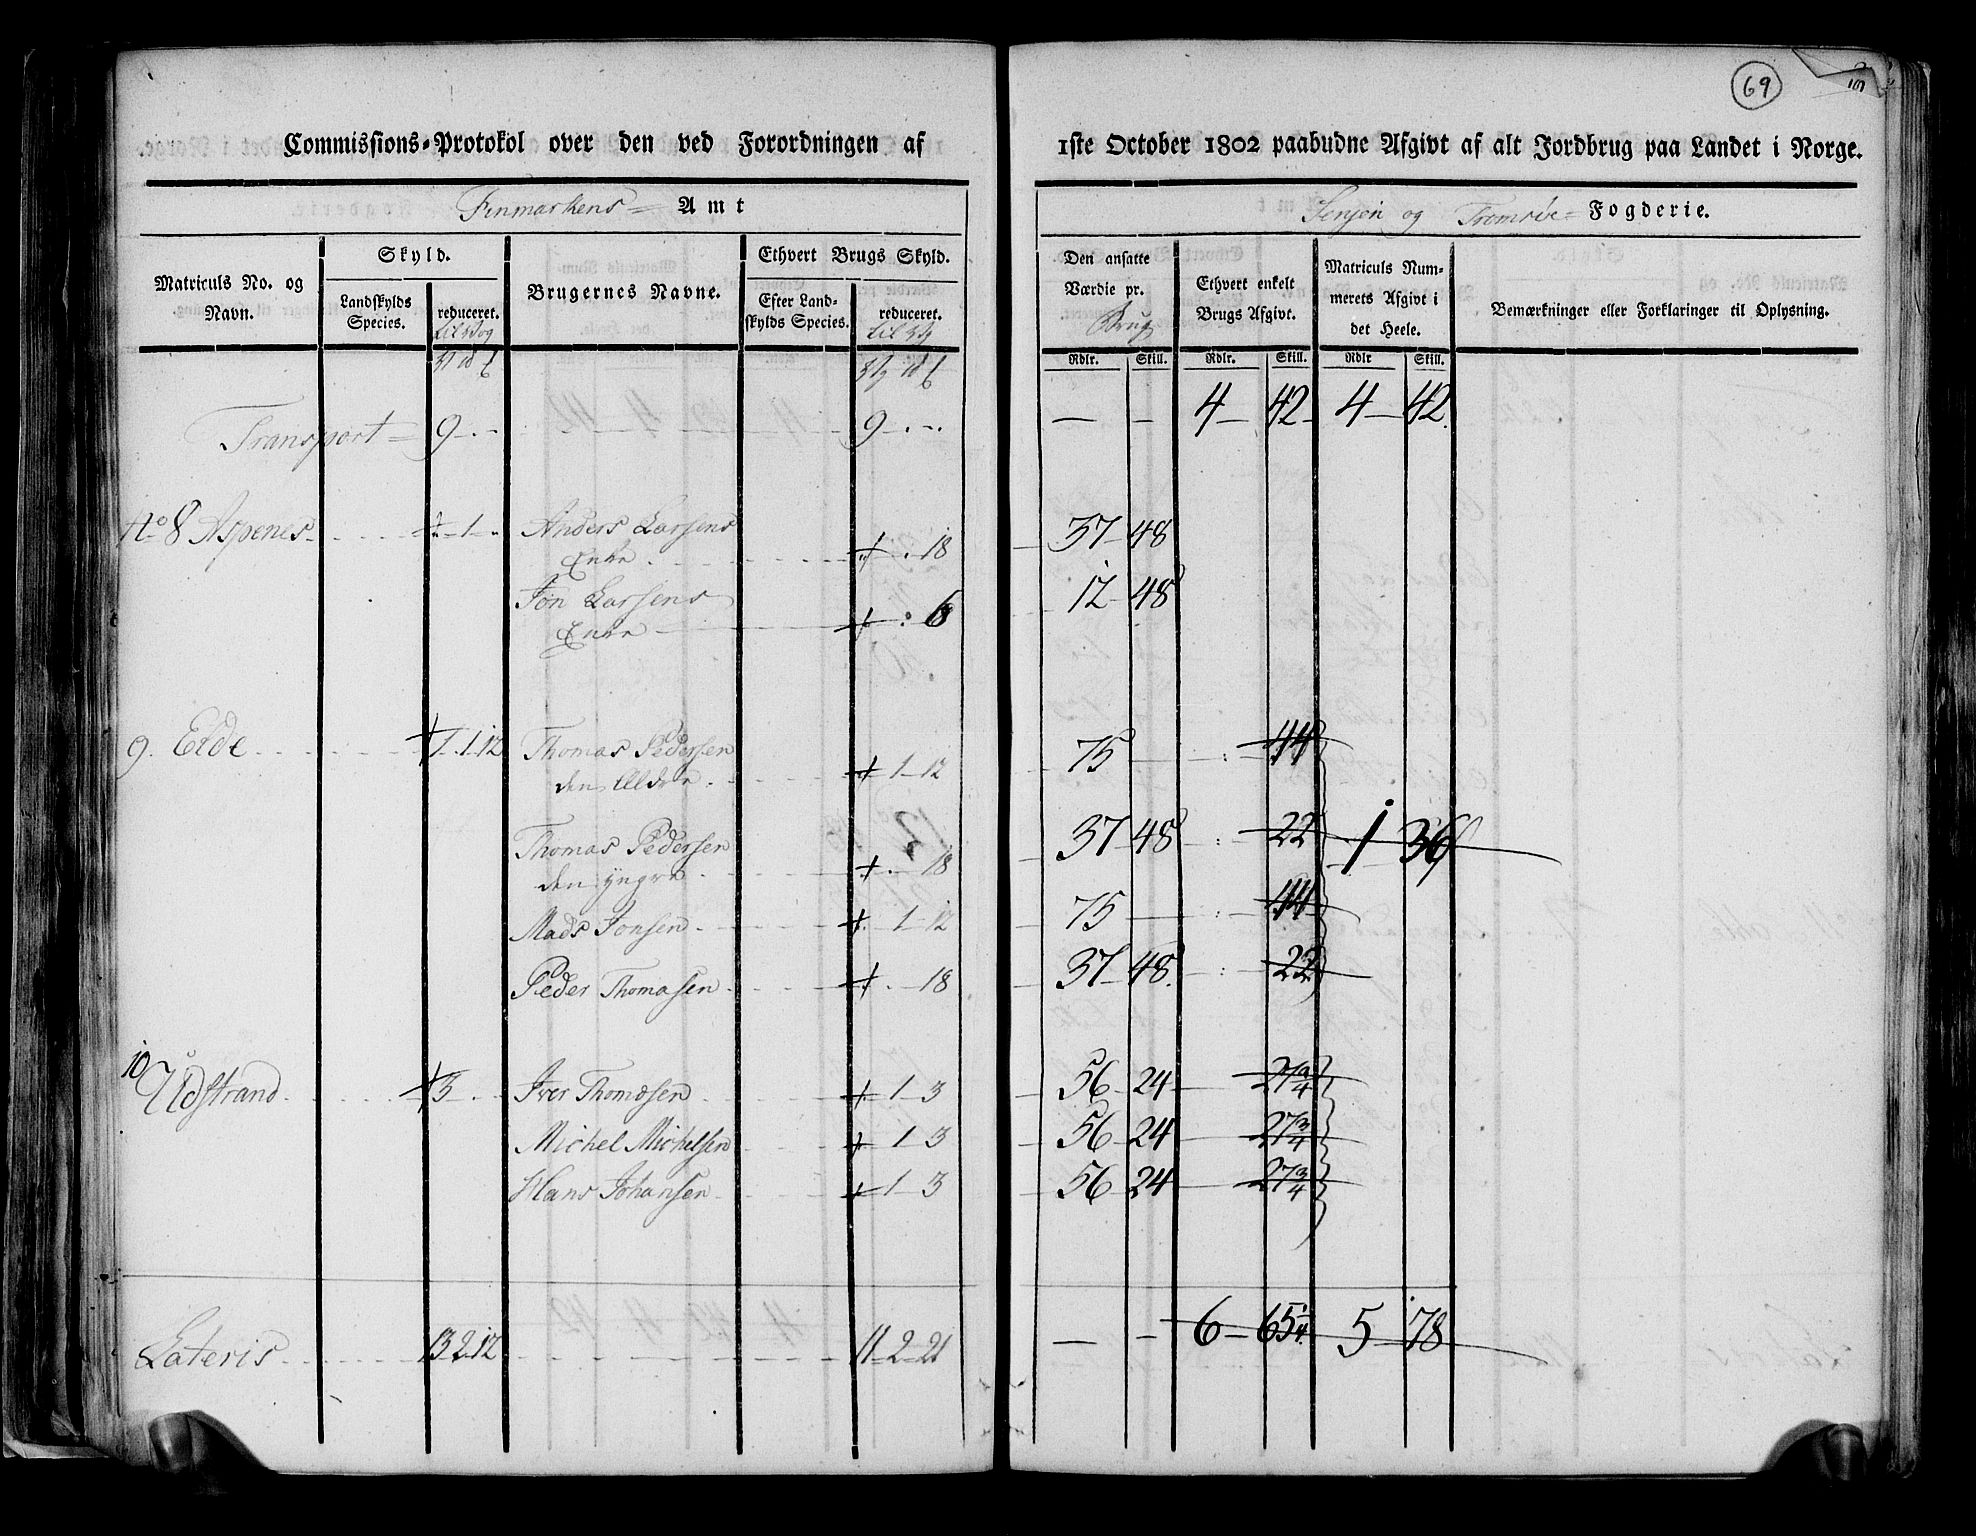 69
Commissions-Protokol over den ved Forordningen af
1ste October 1802 paabudne Afgivt af alt Jordbrug paa Landet i Norge.
Finmarkens Amt
Senjen og Tromsöe Fogderie.
Matriculs No. og Navn.
Skyld.
Landskylds Species.
reduceret.
Brugernes Navne.
Ethvert Brugs Skyld.
Efter Landskylds Species.
reduceret.
Den ansatte Værdie pr. Brug
Ethvert enkelt Brugs Afgivt.
Matriculs Nummerets Afgivt i det Heele.
Bemærkninger eller Forklaringer til Oplysning.
Rdlr. Skill. Rdlr. Skill. Rdlr Skill.
Transport 9 - - 9 - - — - 4 42 4 42
No 8 Aspenes 1 Anders Larsens
Enke 18 37 48
Jon Larsens 12 48
Enke 6
9. Elde 1 12 Thomas Pedersen 75 44
den Ældre 1 12
Thomas Pedersen 37 48 22 1 36
den yngre 18
Mads Jonsen 1 12 75 44
Peder Thomasen 18 37 48 22
10 Udstrand 3 Iver Thomasen 1 3 56 24 27 3/4
Michel Michelsen 1 3 56 24 27 3/4
Hans Johansen 1 3 56 24 27 3/4
Lateris 13 2 12 11 2 21 — - 6 65 1/4 5 78